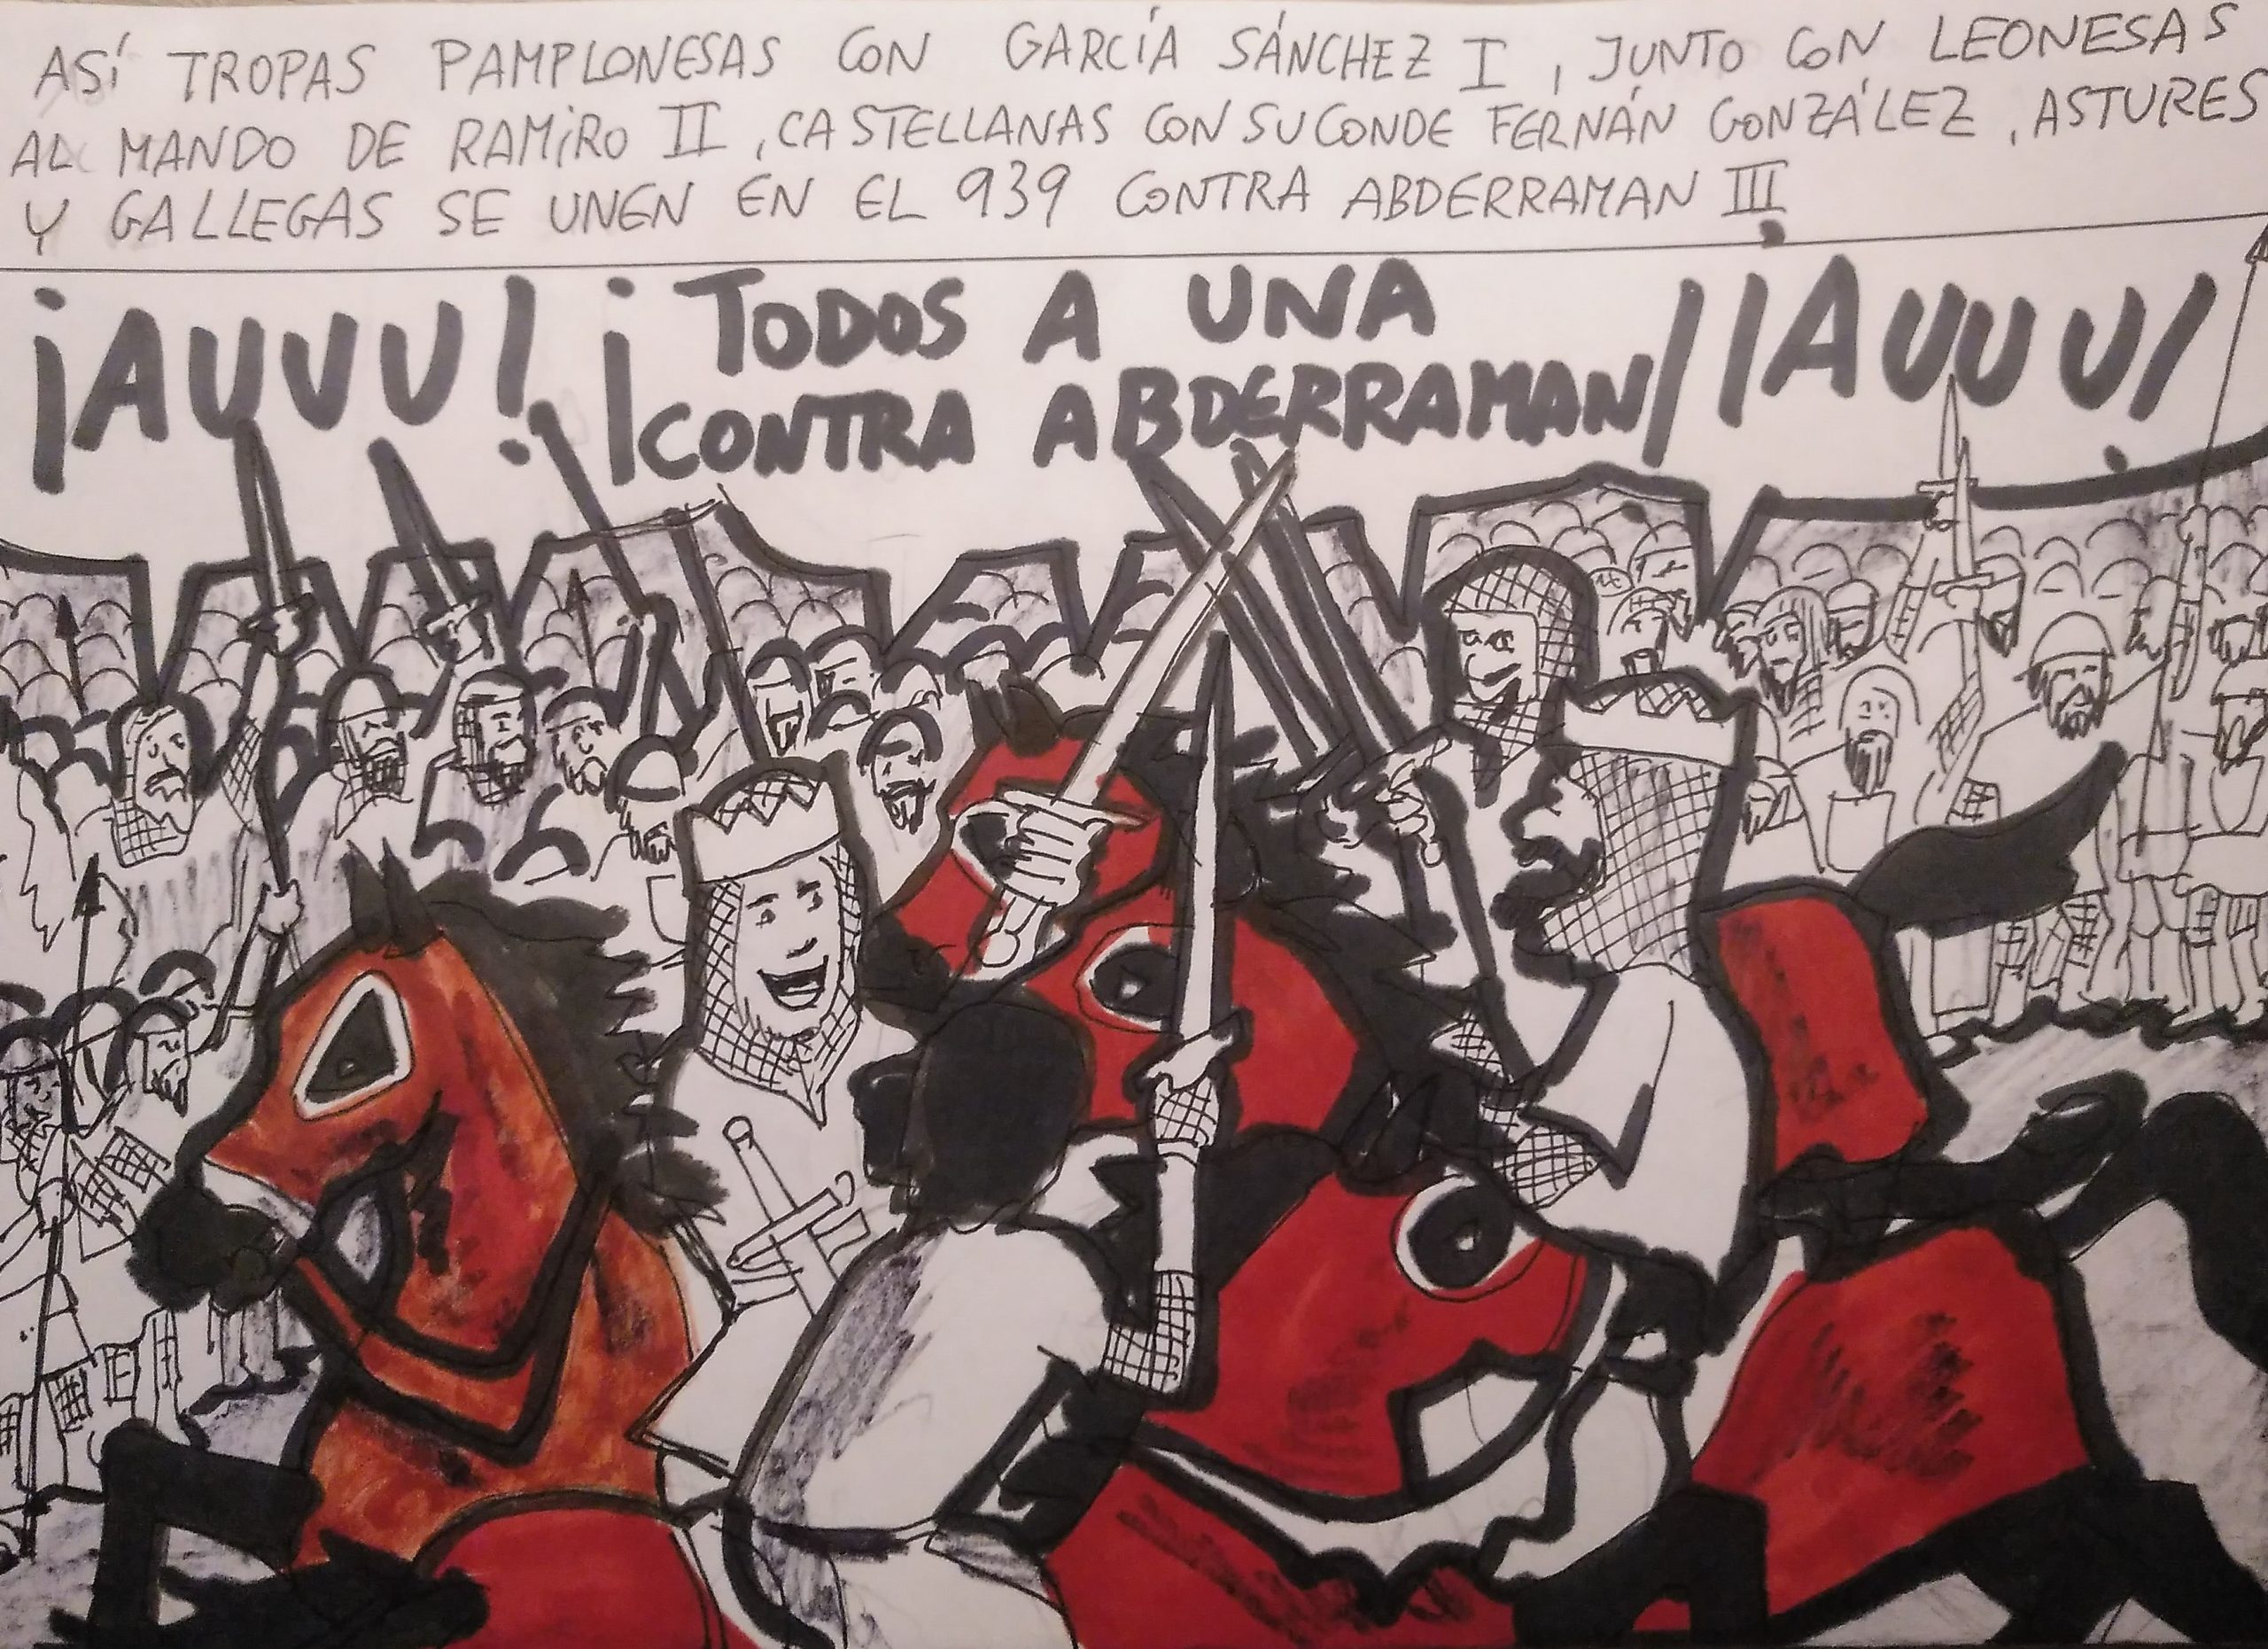 ASÍ TROPAS PAMPLONESAS CON GARCÍA SÁNCHEZ I, JUNTO CON LEONESAS
AL MANDO DE RAMIRO II, CASTELLANAS CON SU CONDE FERNÁN GONZÁLEZ, ASTURES
Y GALLEGAS SE UNEN EN EL 939 CONTRA ABDERRAMAN III
¡AUUU!
¡TODOS A UNA
CONTRA ABDERRAMAN!
¡AUUU!